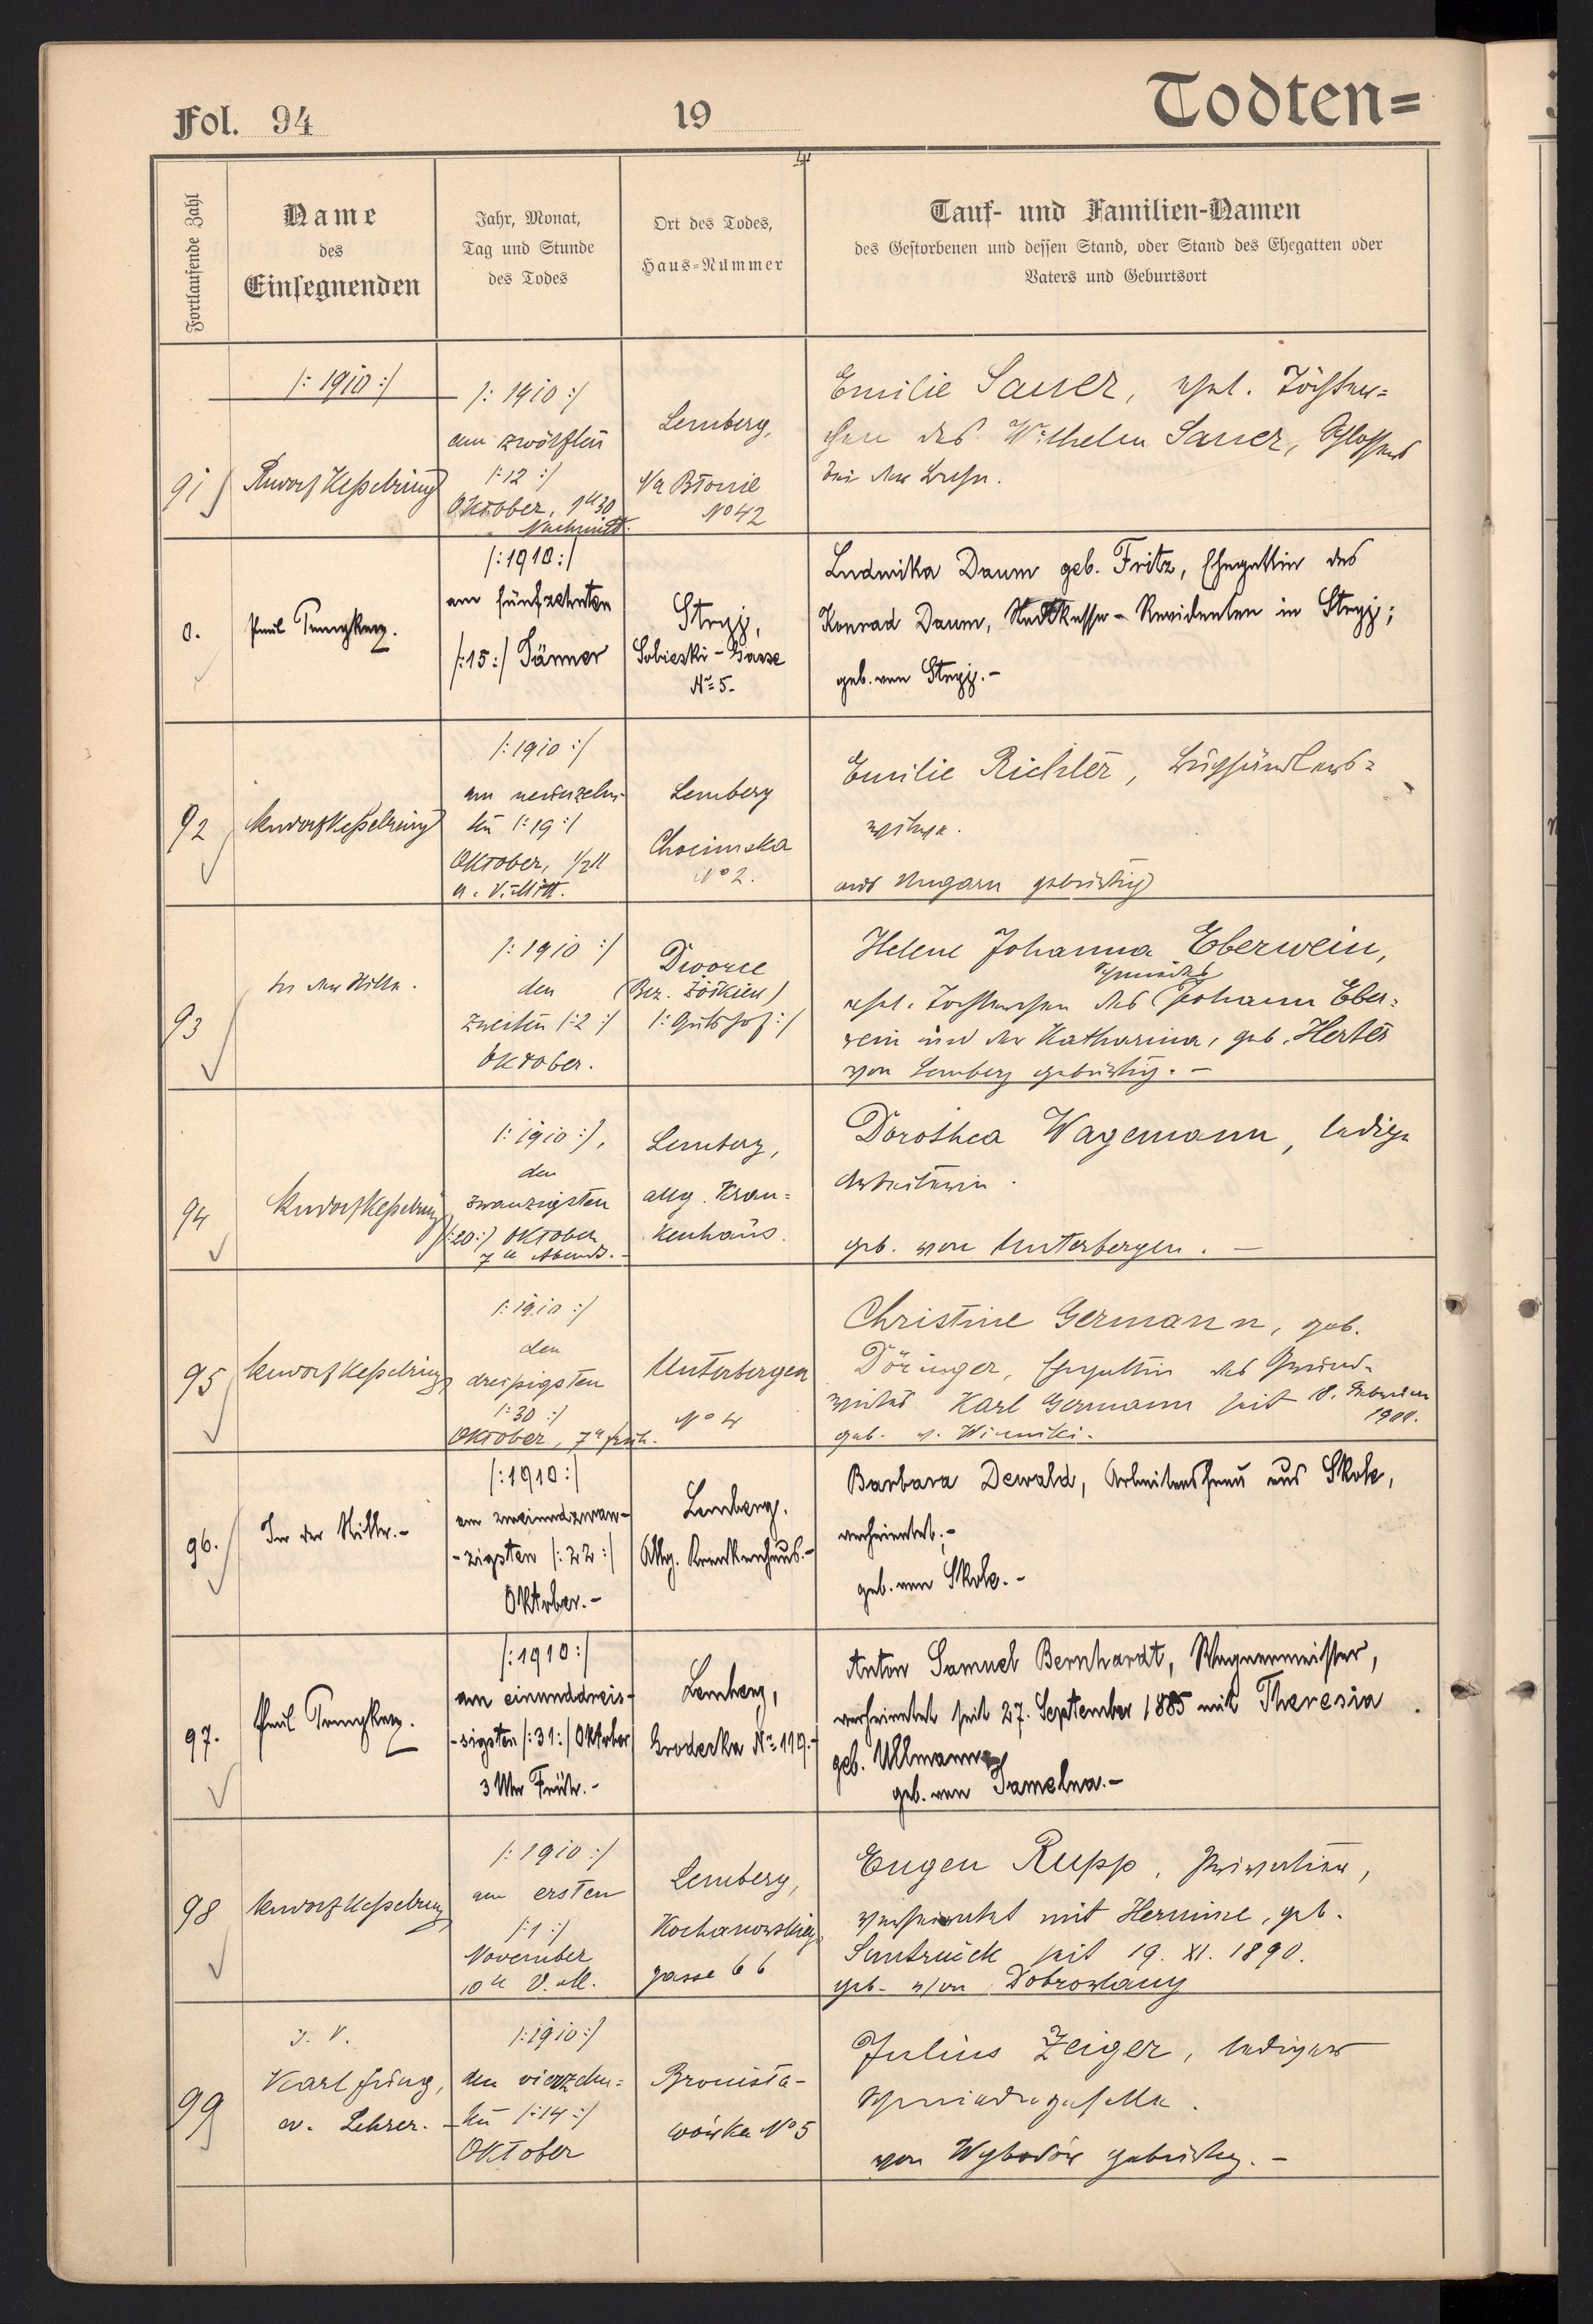 Fol. 94
19
Todten=
Fortlaufende Zahl
Name
des
Einsegnenden
Jahr, Monat,
Tag und Stunde
des Todes
Ort des Todes,
Haus-Nummer
Tauf- und Familien-Namen
des Gestorbenen und dessen Stand, oder Stand des Ehegatten oder
Vaters und Geburtsort
/: 1910 :/
91
Rudolf Keßelring
/: 1910 :/
am zwölften
/:12 :/
Oktober, 1 u 30
Nachmitt.
Lemberg,
Na Błonie
No 42
Emilie Sauer, ehel. Töchter=
chen des Wilhelm Sauer, Schlossers
bei der Bahn.
0.
/:1910:/
am fünfzehnten
/:15:/ Jänner
Stryj,
Sobieski-Gasse
No 5.-
Ludwika Daum geb. Fritz, Ehegattin des
Konrad Daum, Stadtkassa-Revidenten in Stryj;
geb. von Stryj.-
92
Rudolf Keßelring
/: 1910 :/
am neunzehn-
ten /:19:/
Oktober, 1/2 11
u. V. Mitt.
Lemberg
Chocimska
No 2.
Emilie Richter,
witwe.
aus Ungarn gebürtig
93
In der Stille.
/: 1910 :/
den
zweiten /:2:/
Oktober.
Dworce
(Bez. Żółkiew)
/: Gutshof :/
Helene Johanna Eberwein,
ehel. Töchterchen des Johann Eber-
wein und der Katharina, geb. Herter
von Lemberg gebürtig. -
94
Rudolf Keßelring
/: 1910 :/,
den
zwanzigsten
/:20:/ Oktober
7 u Abends. -
Lemberg,
allg. Kran=
kenhaus.
Dorothea Wagemann, ledige
Arbeiterin.
geb. von Unterbergen. -
95
Rudolf Keßelring
/: 1910 :/
den
dreißigsten
/:30 :/
Oktober, 7 u früh.
Unterbergen
No 4
Christine Germann, geb.
Döringer, Ehegattin des Grund-
wirtes Karl Germann seit 18. Februar
1900.
geb. v. Winniki.
96.
In der Stille.-
/:1910:/
am zweiundzwan-
-zigsten /:22:/
Oktober.-
Lemberg.
Allg. Krankenhaus.-
Barbara Dewald, Arbeitersfrau aus Skole,
verheiratet;-
geb. von Skole.-
97.
/:1910:/
am einunddreis-
-sigsten /:31:/ Oktober
3 Uhr Früh.-
Lemberg,
Grodecka No 119.-
Anton Samuel Bernhardt, Wagnermeister,
verheiratet seit 27. September 1885 mit Theresia
geb. Ullmann
geb. von Jamelna.-
98
Rudolf Keßelring
/: 1910 :/
am ersten
/:1:/
November
10 u V. M.
Lemberg,
Kochanowski
gasse 66
Eugen Rupp, Privatier,
verheiratet mit Hermine, geb.
seit 19. XI. 1890.
geb. von Dobrowlany
99
i. V.
Karl Jung,
ev. Lehrer.
/:1910:/
den vierzehn=
ten /:14:/
Oktober
Bronisła-
wówka No 5
Julius Zeiger, lediger
Schmiedegeselle.
von gebürtig. -